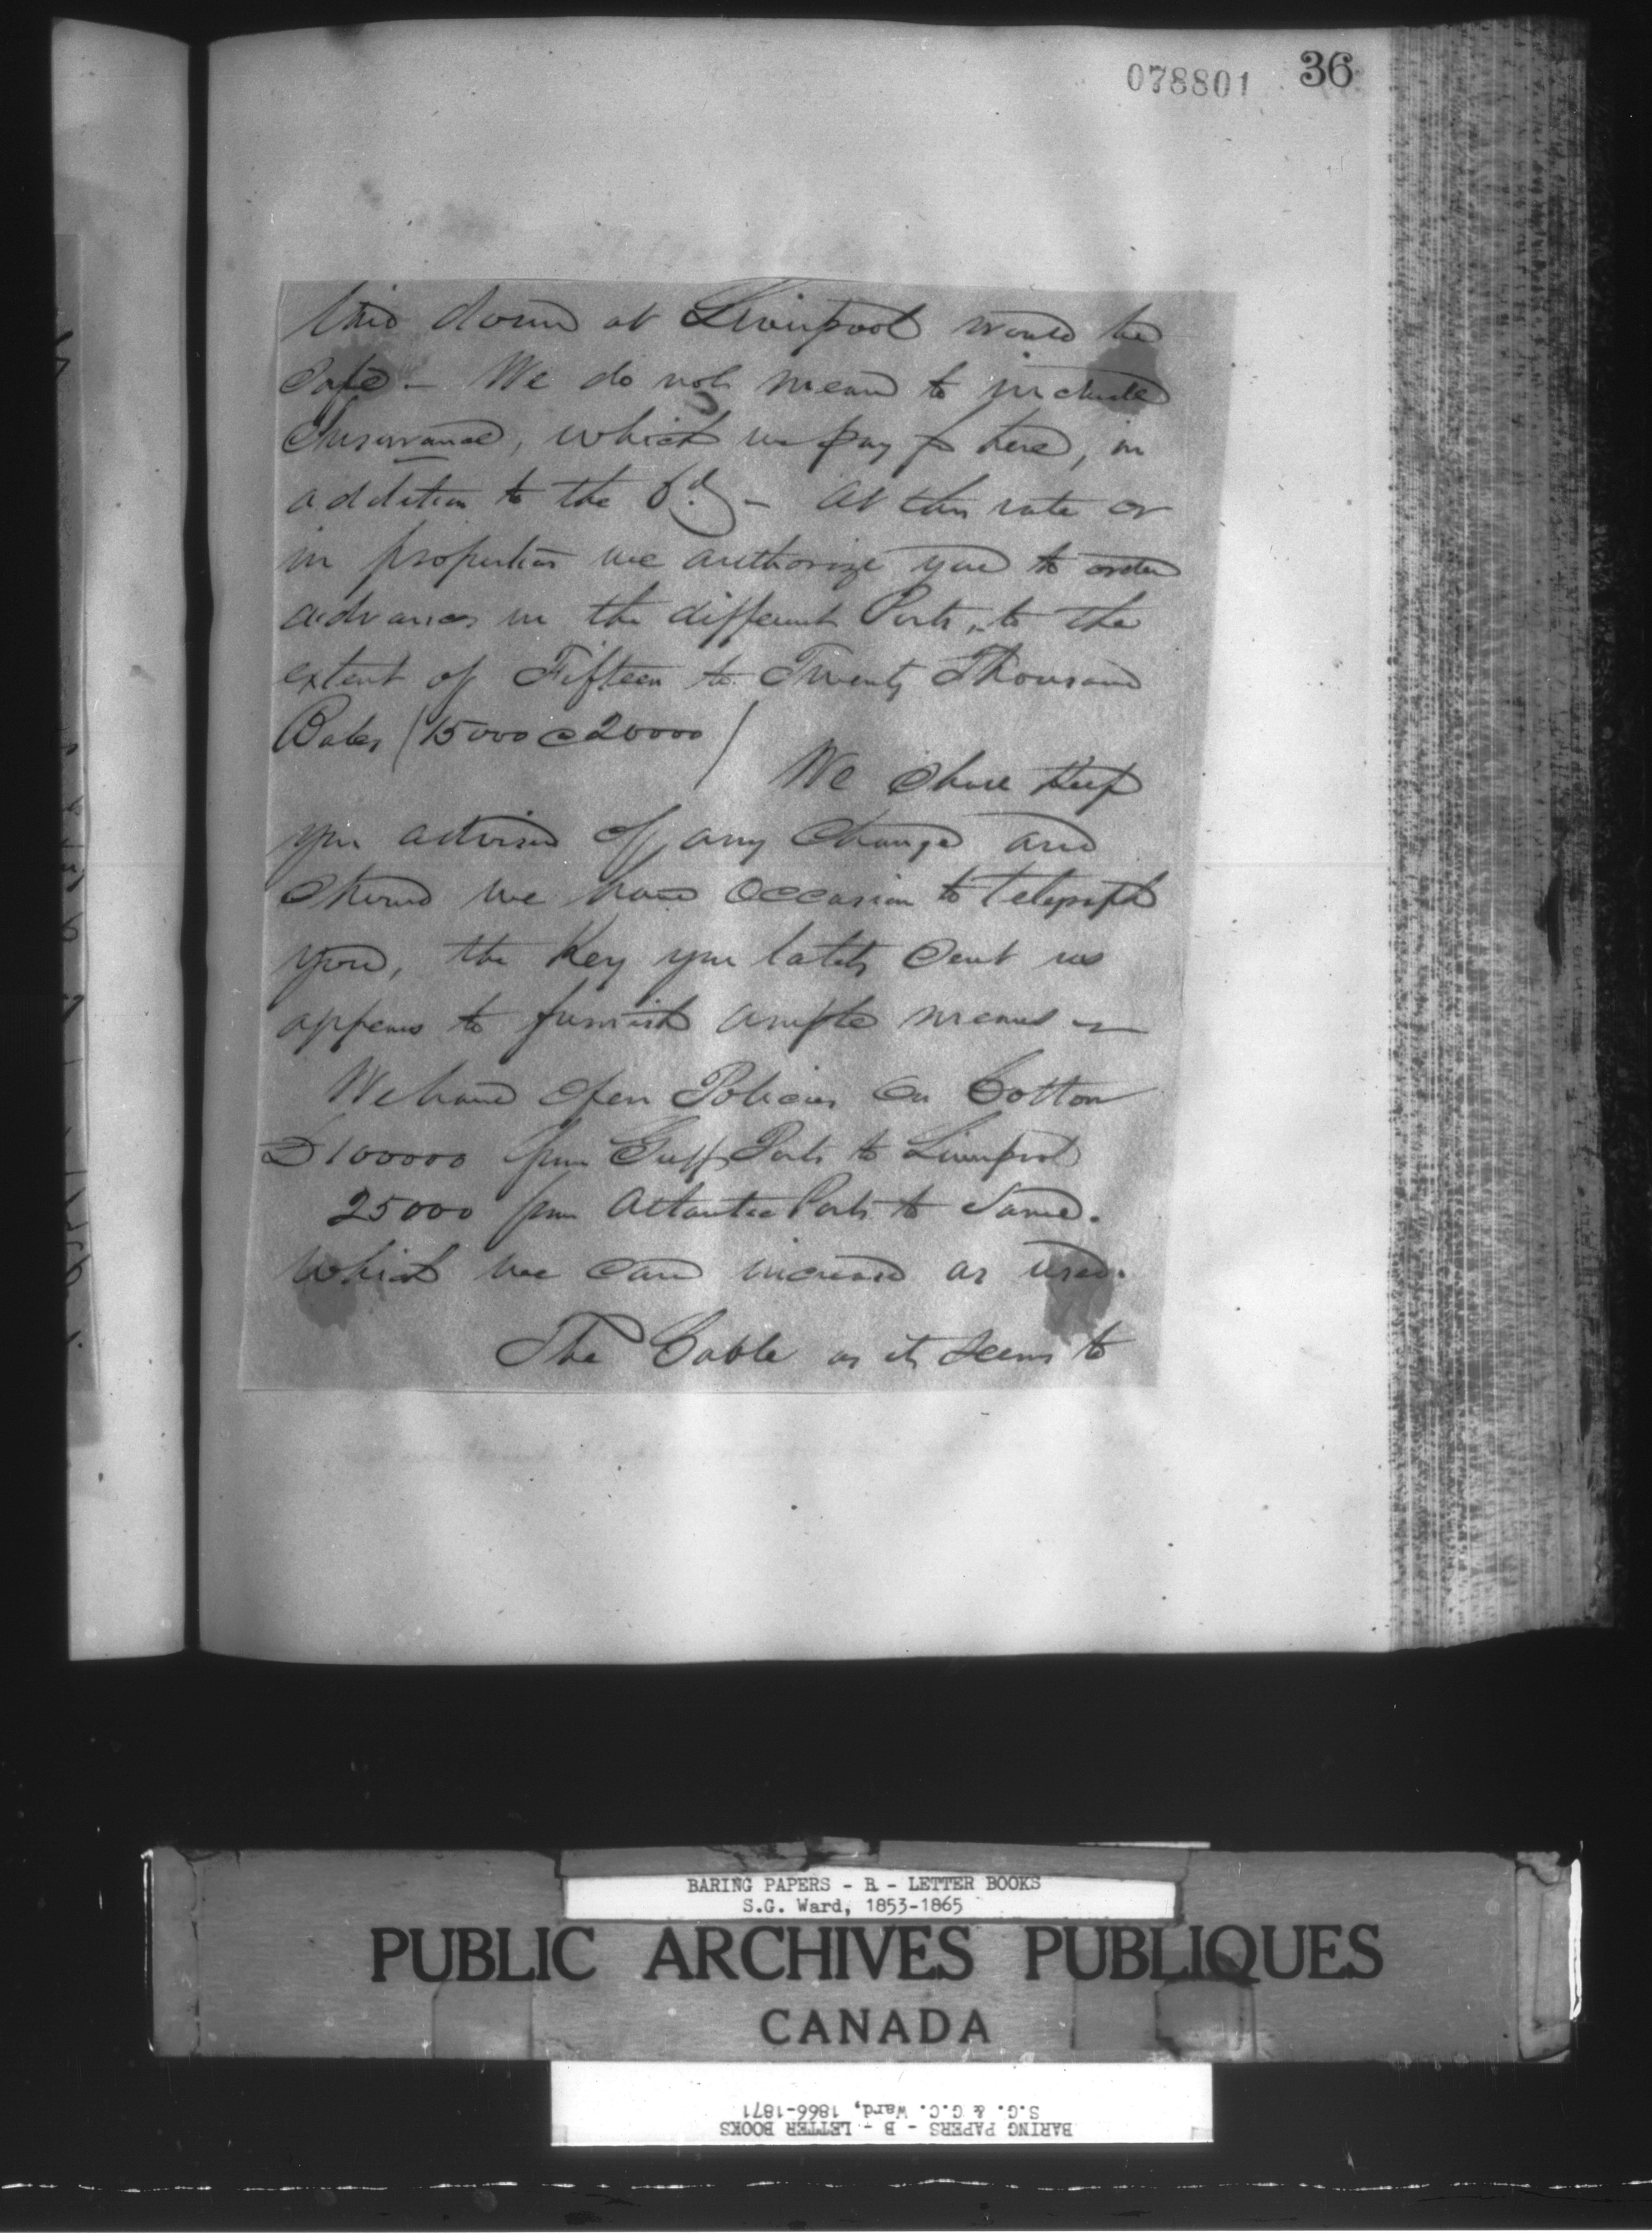 078801 36
laid down at Liverpool would be
safe - We do not mean to include
Insurance, which we pay for here, in
addition to the 6d. - At this rate or
in proportion we authorize you to order
advances in the different Ports, to the
extent of Fifteen to Twenty Thousand
Bales (15000 @ 20000)
We shall keep
you advised of any change and
should we have occasion to telegraph
you, the Key you lately sent us
appears to furnish ample means -
We have open Policies on Cotton
£100000 from Gulf Ports to Liverpool
25000 from Atlantic Ports to Same.
which we can increase as used.
The Cable as it seems to
BARING PAPERS - B - LETTER BOOKS
S.G. Ward, 1853-1865
PUBLIC ARCHIVES PUBLIQUES
CANADA
BARING PAPERS - B - LETTER BOOKS
S.G. & G.C. Ward, 1866-1871